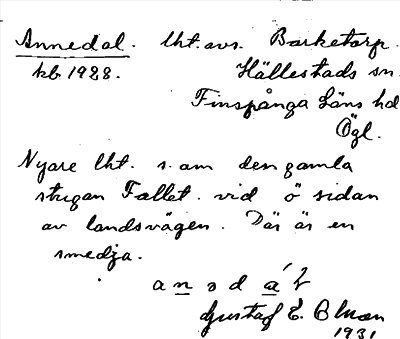 Annedal. lht. avs. Barketorp.
kb 1928. Hällestads sn.
Finspånga Läns hd
Ögl.
Nyare lht. s. om den gamla
stugan Fallet. vid ö sidan
av landsvägen. Där är en
smedja.
Gustaf E.
1931